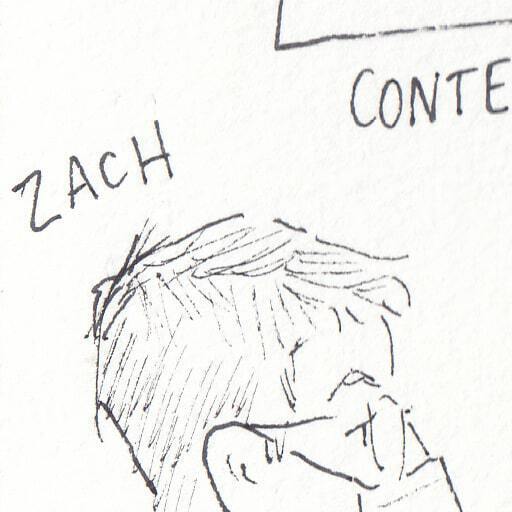 CONTE
ZACH